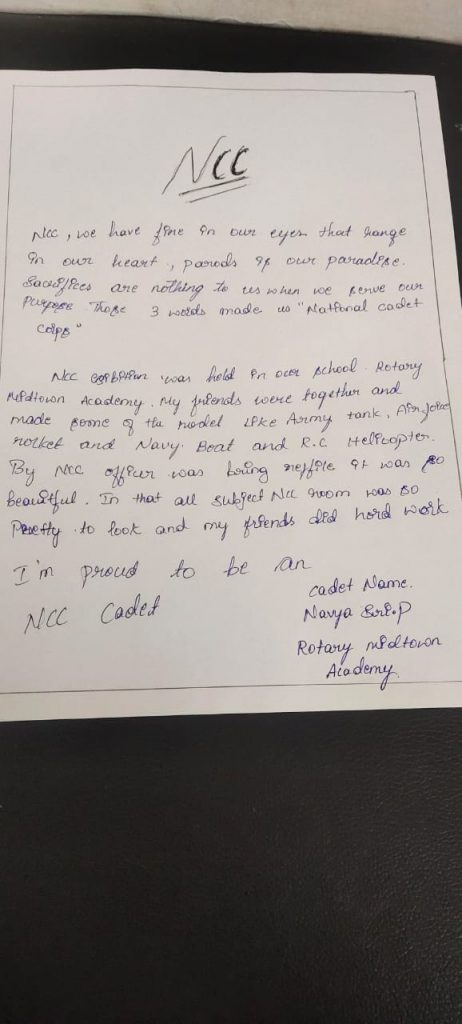 NCC
NCC, we have fire in our eyes that range
in our heart, parods is our paradise.
Sacrifices are nothing to us when we serve our
Purpose Those 3 words made us "National cadet
Corps"
NCC exibition was held in our school. Rotary
Midtown Academy. My friends were together and
made some of the model like Army tank, Air force
rocket and Navy Boat and R.C Helicopter.
By NCC officer was bring it was so
beautiful. In that all subject Ncc room was so
Pretty to look and my friends did hord work
I'm proud to be an
NCC Cadet
Cadet Name.
Navya Sri.P
Rotary midtown
Academy.